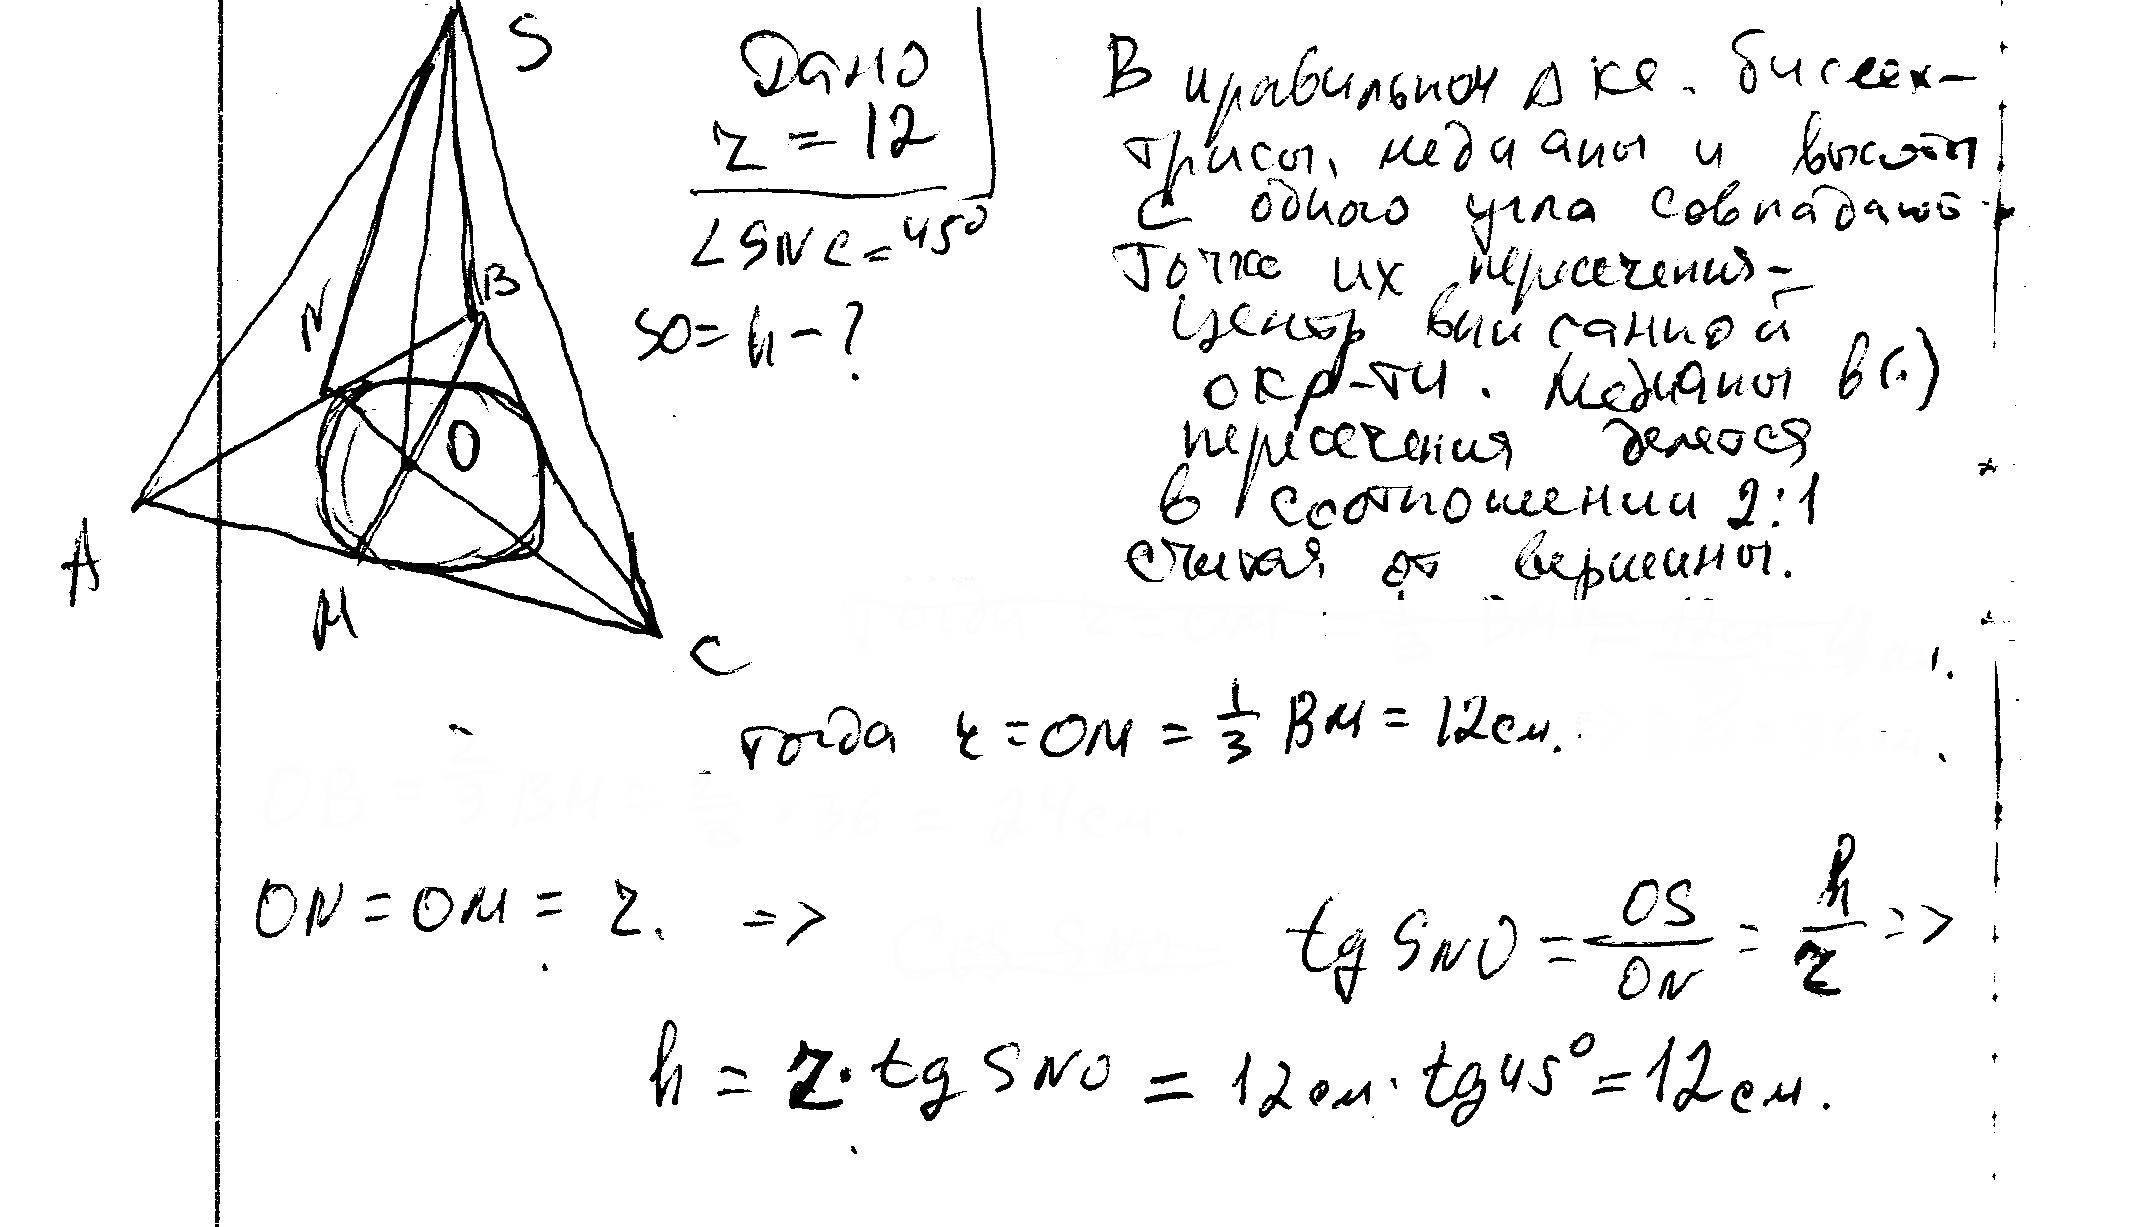 S
Дано
r = 12
∠SNC = 45°
SO = h - ?
N
B
O
A
M
C
В правильном Δ ке. биссек-
трисы, медианы и высоты
с одного угла совпадают.
Точка их пересечения -
центр вписанной
окр-ти. Медианы в (.)
пересечения делятся
в соотношении 2:1
считая от вершины.
тогда r = OM = 1/3 BM = 12 см.
ON = OM = r. =>
tg SNO = OS/ON = h/r =>
h = r · tg SNO = 12 см · tg 45° = 12 см.